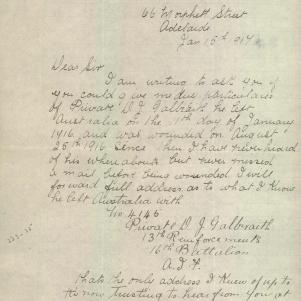 66 Morphett Street
Adelaide
Jan 15th 1917
Dear Sir
I am writing to ask you if
you could give me due particulars
of Private D. J. Galbraith he left
Australia on the 11th day of January
1916, and was wounded on August
25th 1916 Since then I have never heard
of his whereabouts but never missed
a mail before being wounded I will
forward full address as to what I know
he left Australia with
No 4146
Private D. J. Galbraith
13th Reinforcements
16th Battalion
A.I.F.
Thats the only address I knew of up to
the now Trusting to hear from you at